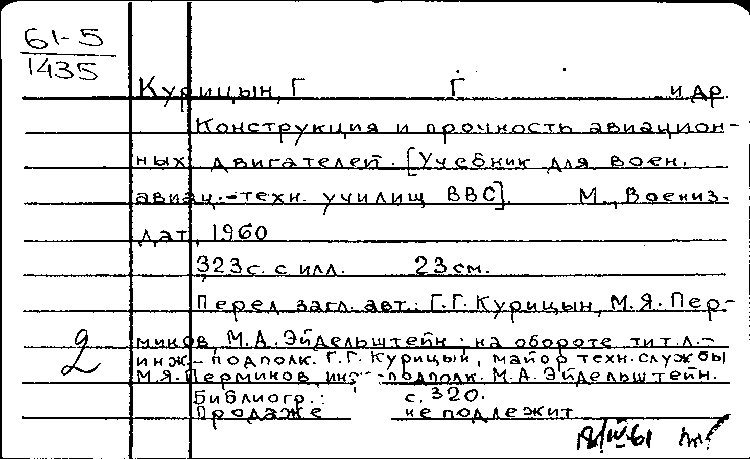 61-5
1435
Курицын, Г Г и др
Конструкция и прочность авиацион-
ных двигателей. [Учебник для воен.
авиац.-техн. училищ ВВС]. М., Воениз-
дат, 1960
323 с. с илл. 23 см.
Перед загл. авт.: Г.Г. Курицын, М.Я. Пер-
2
миков, М.А. Эйдельштейн; на обороте тит.л.-
инж-подполк. Г.Г. Курицын, майор техн. службы
М.Я. Перминов, инж-подполк. М.А. Эйдельштейн.
Библиогр.: с. 320.
Продаже не подлежит